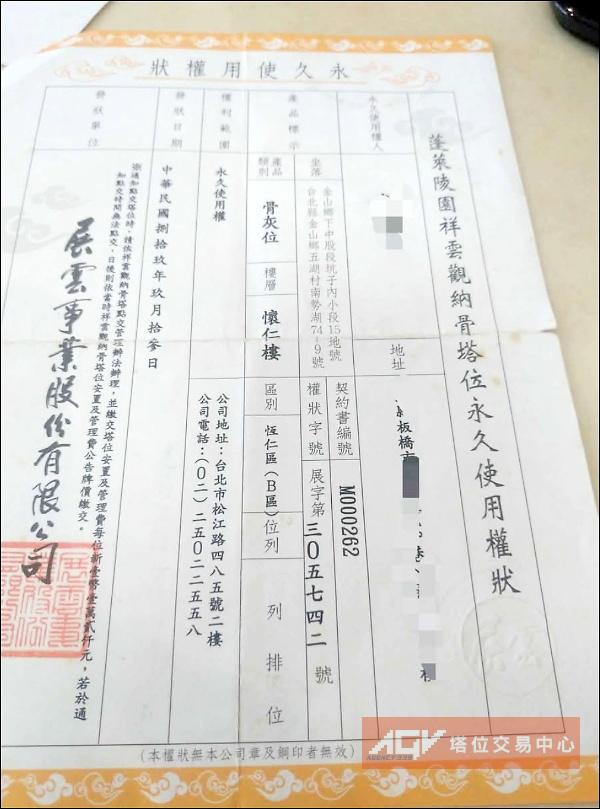 狀權用使久永
蓬萊陵園祥雲觀納骨塔位永久使用權狀
永久使用權人
地址
板橋市
產品標示
坐落
金山鄉下中股段坑子內小段15地號
台北縣金山鄉五湖村南勢湖74-9號
契約書編號
M000262
權狀字號
展字第三〇五七四二號
產品類別
骨灰位
樓層
懷仁樓
區別
恆仁區(B區)
位列
列 排 位
權利範圍
永久使用權
發狀日期
中華民國捌拾玖年玖月拾參日
公司地址:台北市松江路四八五號二樓
公司電話:(〇二)二五〇二二五五八
發狀單位
※通知點交塔位時,請依祥雲觀納骨塔點交管理辦法辦理,並繳交塔位安置及管理費每位新臺幣壹萬貳仟元,若於通
知點交時間無法點交,日後則依當時祥雲觀納骨塔位安置及管理費公告牌價繳交。
展雲事業股份有限公司
(本權狀無本公司章及鋼印者無效)
AGV 塔位交易中心
AGENCY 339